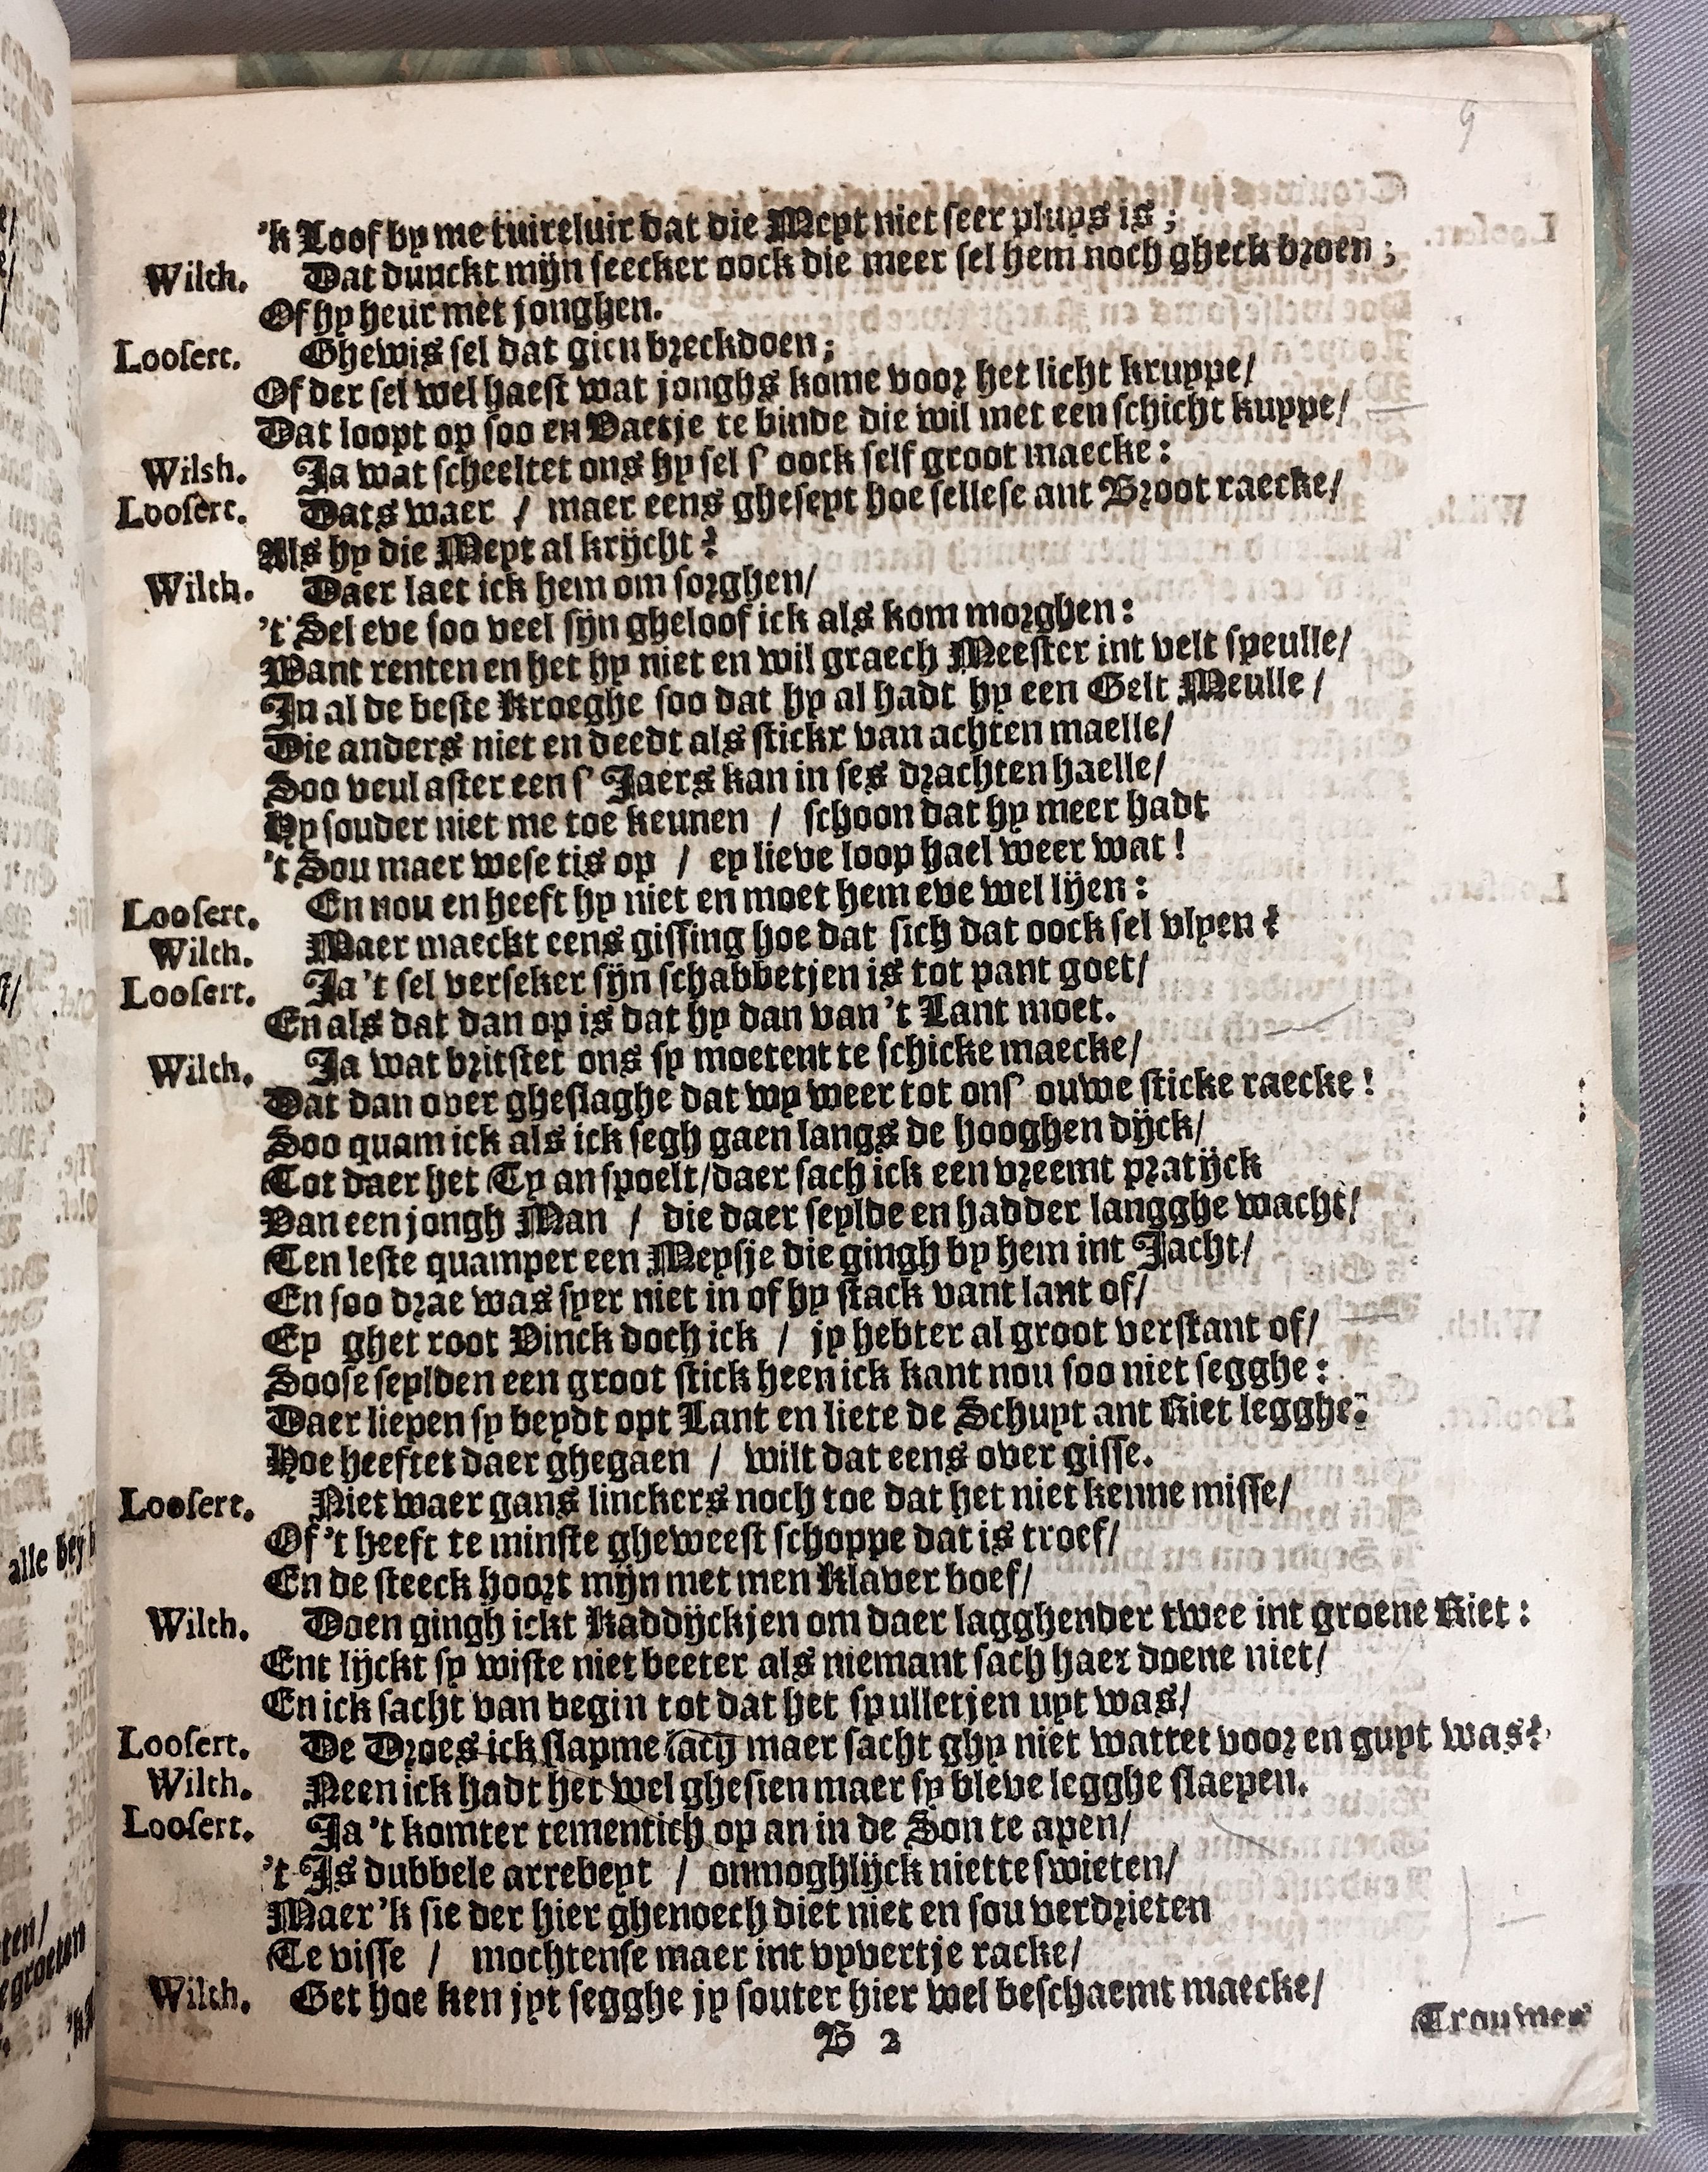 9
'k Loof by me tuireluir dat die Meyt niet seer pluys is;
Wilth. Dat dunckt mijn seecker oock die meer sel hem noch gheck broen;
Of hy heur met jonghen.
Loosert. Ghewis sel dat gien breckdoen;
Of der sel wel haest wat jonghs kome voor het licht kruppe/
Dat loopt op soo en Vaetje te binde die wil met een schicht kuppe/
Wilsh. Ja wat scheeltet ons hy sel s' oock self groot maecke:
Loosert. Dats waer / maer eens gheseyt hoe sellese ant Broot raecke/
Als hy die Meyt al krijcht?
Wilth. Daer laet ick hem om sorghen/
't Sel eve soo veel sijn gheloof ick als kom morghen:
Want renten en het hy niet en wil graech Meester int velt speulle/
In al de beste Kroeghe soo dat hy al hadt hy een Gelt Meulle /
Die anders niet en deedt als stickx van achten maelle/
Soo veul aster een s' Jaers kan in ses drachten haelle/
Hy souder niet me toe keunen / schoon dat hy meer hadt
't Sou maer wese tis op / ey lieve loop hael weer wat!
Loosert. En nou en heeft hy niet en moet hem eve wel lijen:
Wilth. Maer maeckt eens gissing hoe dat sich dat oock sel vlyen?
Loosert. Ja 't sel verseker sijn schabbetjen is tot pant goet/
En als dat dan op is dat hy dan van 't Lant moet.
Wilth. Ja wat britstet ons sy moetent te schicke maecke/
Dat dan over gheslaghe dat wy weer tot ons' ouwe sticke raecke!
Soo quam ick als ick segh gaen langs de hooghen dijck/
Tot daer het Ty an spoelt/daer sach ick een vreemt pratijck
Van een jongh Man / die daer seylde en hadder langghe wacht/
Ten leste quamper een Meysje die gingh by hem int Jacht/
En soo drae was syer niet in of hy stack vant lant of/
Ey ghet root Vinck doch ick / jy hebter al groot verstant of/
Soose seylden een groot stick heen ick kant nou soo niet segghe:
Daer liepen sy beydt opt Lant en liete de Schuyt ant Riet legghe:
Hoe heeftet daer ghegaen / wilt dat eens over gisse.
Loosert. Niet waer gans linckers noch toe dat het niet kenne misse/
Of 't heeft te minste gheweest schoppe dat is troef/
En de steeck hoort mijn met men Klaver boef/
Wilth. Doen gingh ickt Kaddijckjen om daer lagghender twee int groene Riet:
Ent lijckt sy wiste niet beeter als niemant sach haer doene niet/
En ick sacht van begin tot dat het spulletjen uyt was/
Loosert. De Droes ick slapme sacg maer sacht ghy niet wattet voor en guyt was?
Wilth. Neen ick hadt het wel ghesien maer sy bleve legghe slaepen.
Loosert. Ja 't komter tementich op an in de Son te apen/
't Is dubbele arrebeyt / onmoghlijck niet te swieten/
Maer 'k sie der hier ghenoech diet niet en sou verdrieten
Te visse / mochtense maer int vyvertje racke/
Wilth. Get hoe ken jyt segghe jy souter hier wel beschaemt maecke/
B 2
Trouwen